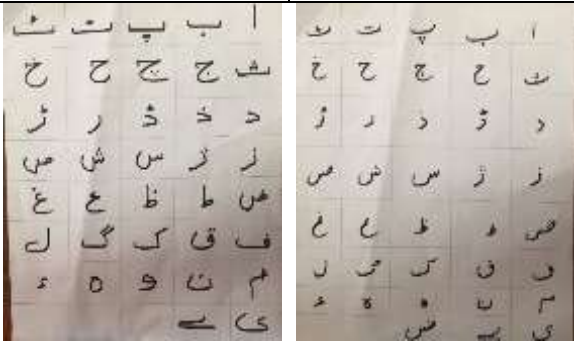 ا ب پ ت ٹ
ث ج چ ح خ
د ذ ڈ ر ڑ
ز ژ س ش ص
ض ط ظ ع غ
ف ق ک گ ل
م ن و ہ ء
ی ے
ا ب پ ت ٹ
ث ج چ ح خ
د ڈ ذ ر ڑ
ز ژ س ش ص
ض ط ظ ع غ
ف ق ک گ ل
م ن و ہ ء
ی ے ض